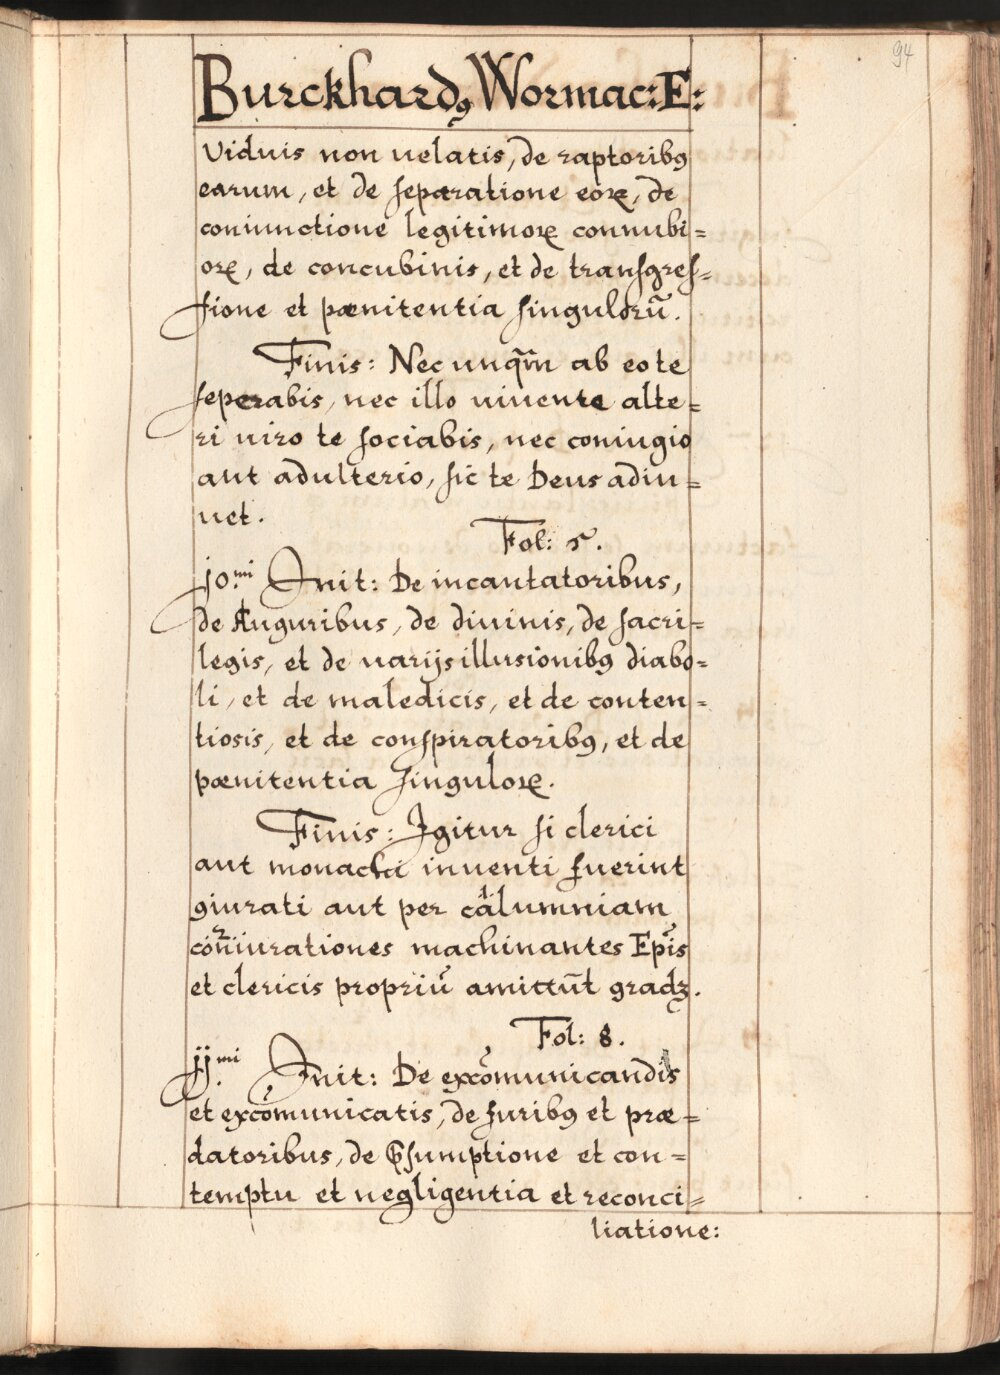 94
Burckhardꝰ Wormac: E:
Viduis non uelatis, de raptoribꝰ
earum, et de separatione eoꝝ, de
coniunctione legitimoꝝ connubi=
oꝝ, de concubinis, et de transgres=
sione et pænitentia singulorū.
Finis: Nec unq̄m ab eo te
seperabis, nec illo uiuente alte=
ri uiro te sociabis, nec coniugio
aut adulterio, sic te Deus adiu=
uet.
Fol: 5.
jo.mi Init: De incantatoribus,
de Auguribus, de diuinis, de sacri=
legis, et de varijs illusionibꝰ diabo=
li, et de maledicis, et de conten=
tiosis, et de conspiratoribꝰ, et de
pænitentia singuloꝝ.
Finis: Igitur si clerici
aut monachi inuenti fuerint
giurati aut per calumniam
cōniurationes machinantes Ep̄is
et clericis propriū amittūt gradꝫ.
Fol: 8.
jj.mi Init: De excōmunicandis
et excōmunicatis, de furibꝰ et præ=
datoribus, de p̄sumptione et con=
temptu et negligentia et reconci=
liatione: